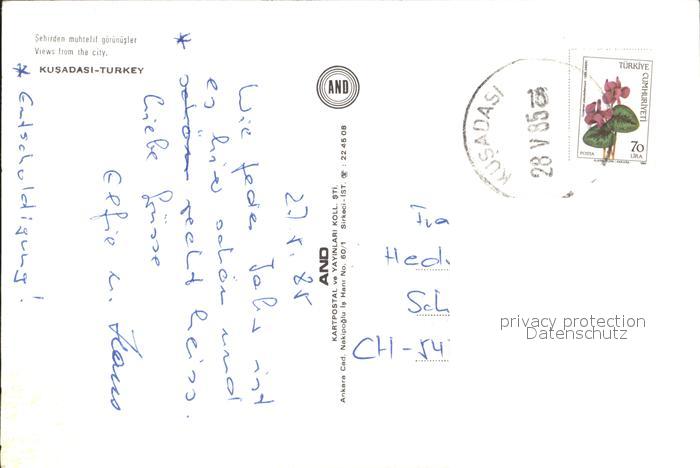 Şehirden muhtelif görünüşler
Views from the city.
KUŞADASI-TURKEY
AND
KUŞADASI
28 V 85
TÜRKİYE CUMHURİYETİ
POSTA
70 LİRA
AND
KARTPOSTAL ve YAYINLARI KOLL. ŞTİ.
Ankara Cad. Nakipoğlu İş Hanı No. 60/1 Sirkeci-İST. ☎ : 22 45 08
27. V. 85
Wie jedes Jahr ist
es hier schön und
* schön recht heiss.
Liebe Grüsse
Effie u. Hans
* Entschuldigung!
Hedi
Sch
CH-54
privacy protection
Datenschutz